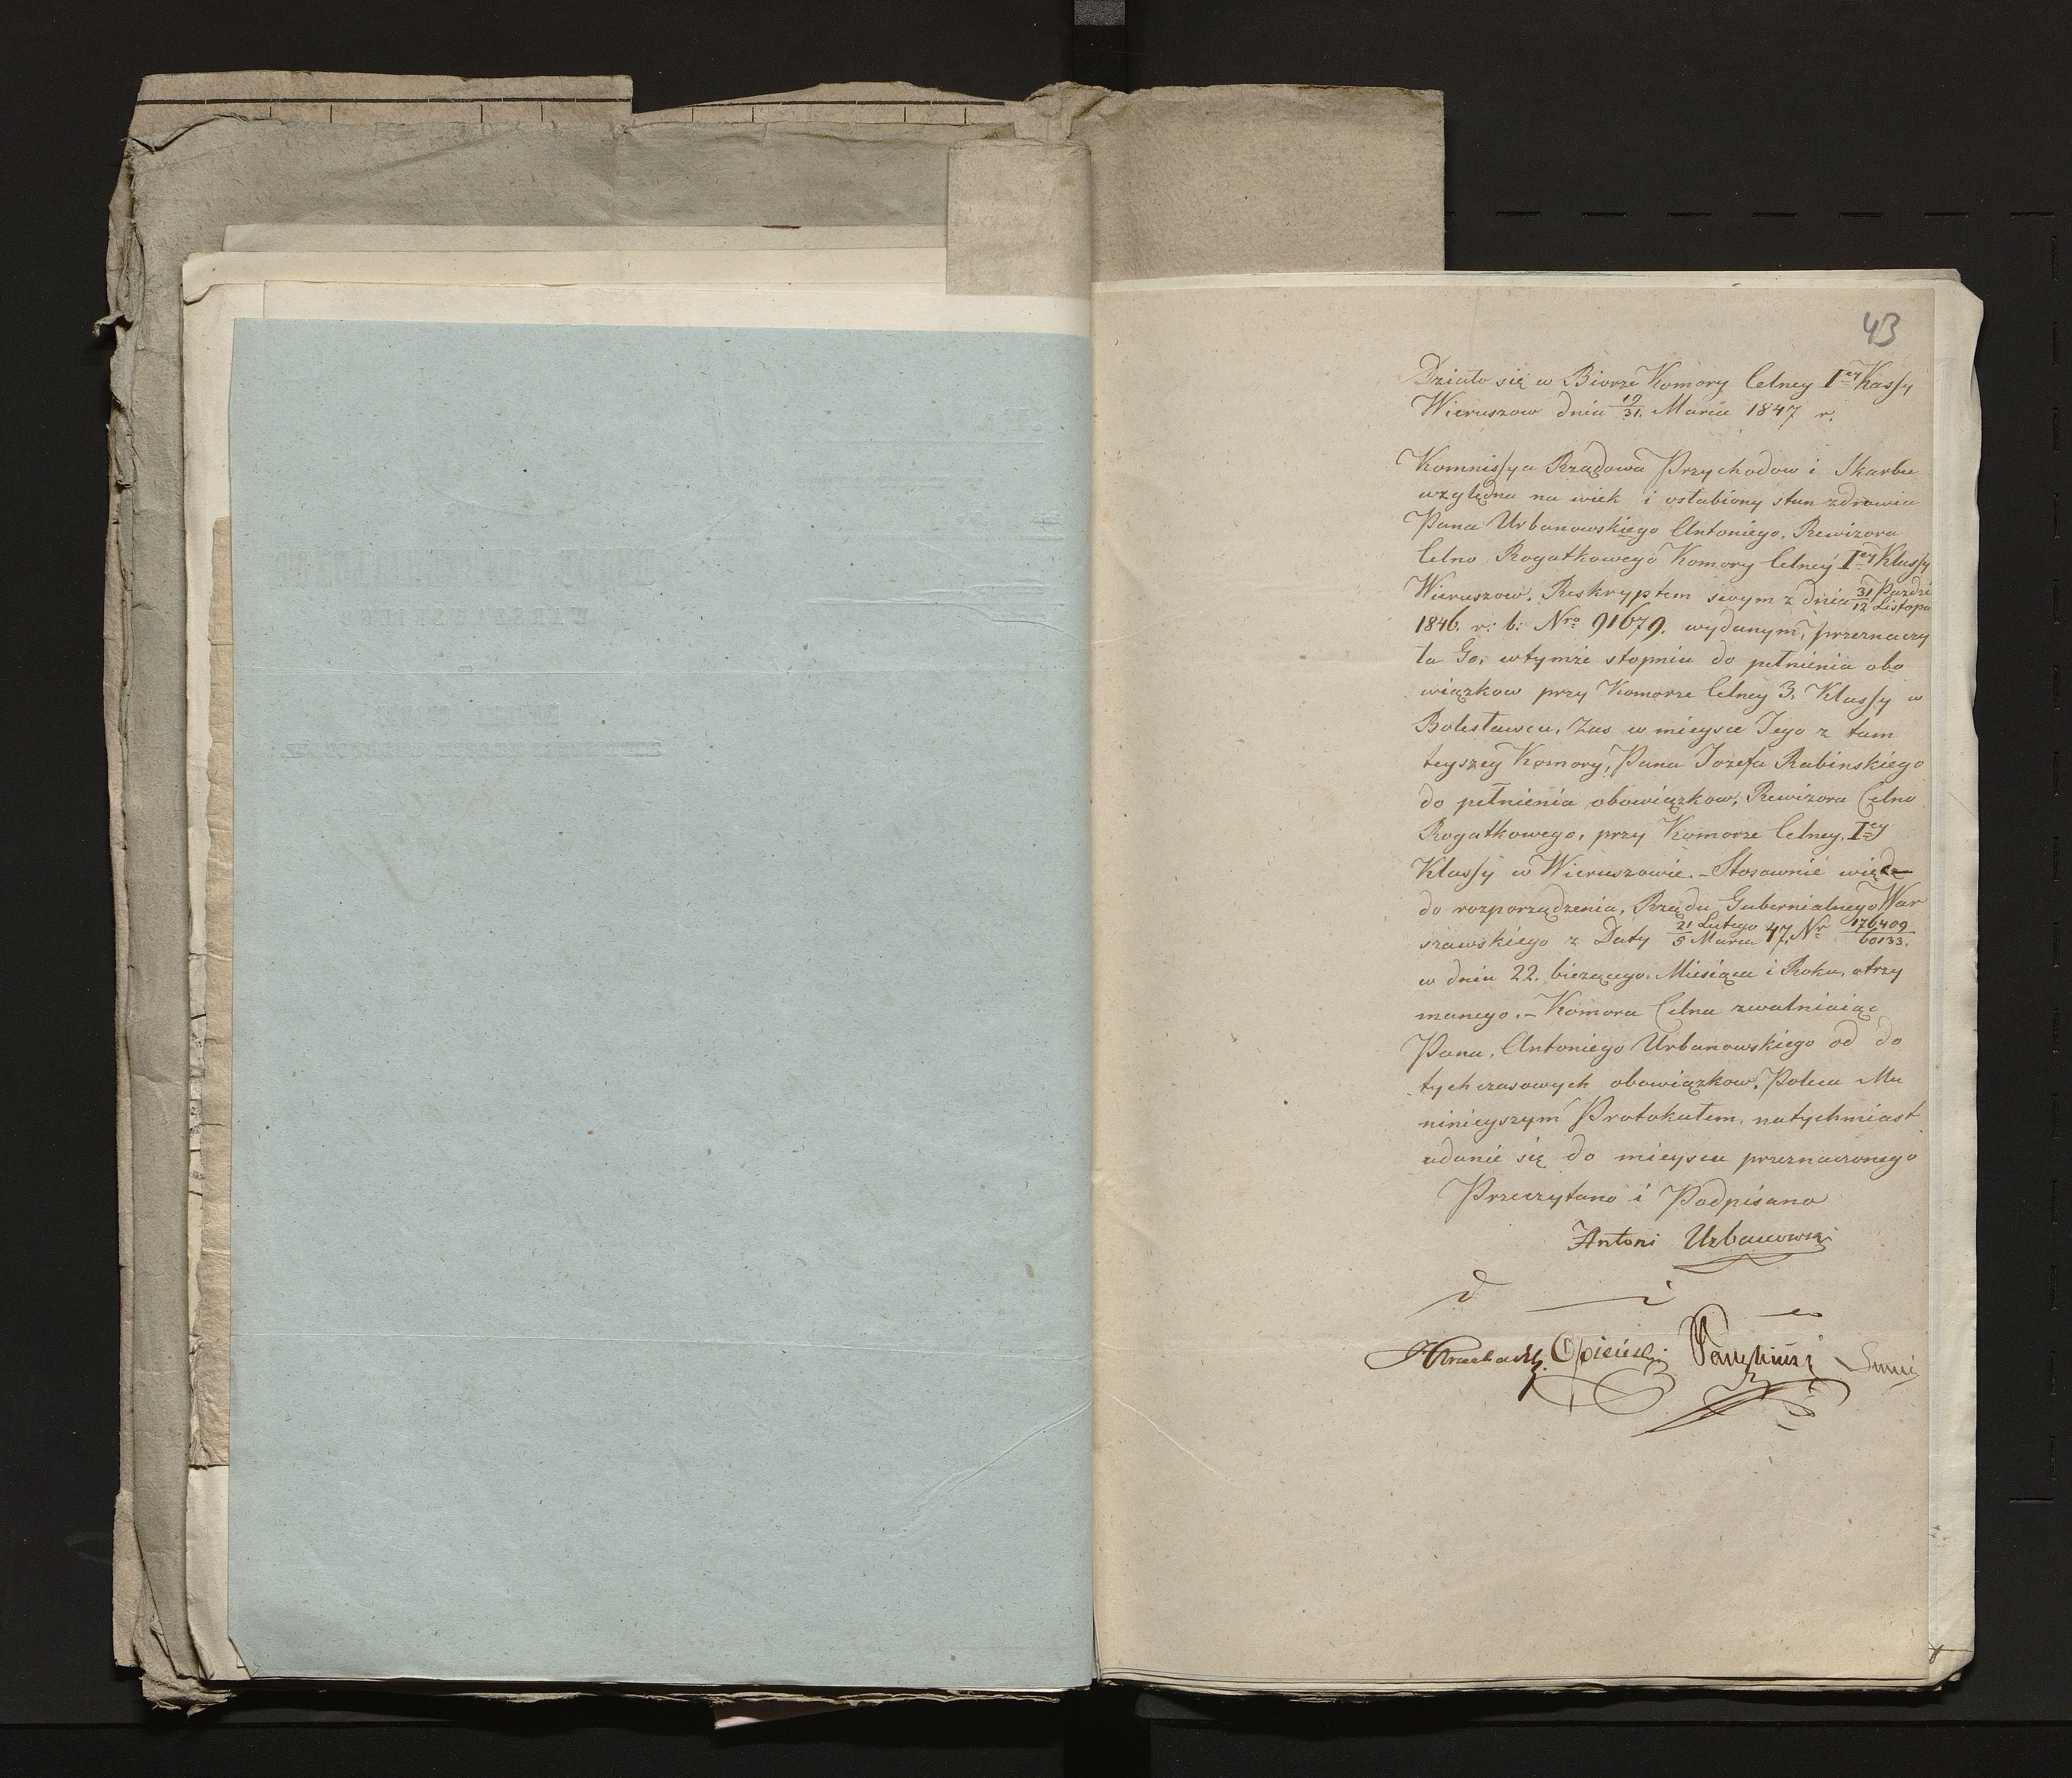 43
Działo się w Biorze Komory Celney I<sup>ey</sup> Klassy
Wieruszow dnia 19/31. Marca 1847 r.
Kommissya Rządowa Przychodow i Skarbu
względna na wiek i osłabiony stan zdrowia
Pana Urbanowskiego Antoniego, Rewizora
Celno Rogatkowego Komory Celney I<sup>ey</sup> Klassy
Wieruszow, Reskryptem swym z dnia 31 Paźdz/12 Listopa
1846. r: b: Nro 91679. wydanym, przeznaczy
ła Go, wtymże stopniu do pełnienia obo
wiązkow przy Komorze Celney 3. Klassy w
Bolesławcu, Zas w mieysce Jego z tam
teyszey Komory, Pana Jozefa Rabinskiego
do pełnienia obowiązkow, Rewizora Celno
Rogatkowego, przy Komorze Celney, I<sup>ey</sup>
Klassy w Wieruszowie. - Stosownie więc
do rozporządzenia, Rządu Gubernialnego War
szawskiego z Daty 21 Lutego/5 Marca 47, Nr 176,409/60133.
w dniu 22. bieżącego, Miesiąca i Roku, otrzy
manego. - Komora Celna zwalniaiąc
Pana, Antoniego Urbanowskiego od do
tychczasowych obowiązkow, Poleca Mu
ninieyszym Protokułem, natychmiast
udanie się do mieysca przeznaczonego
Przeczytano i Podpisano
Antoni Urbanowski